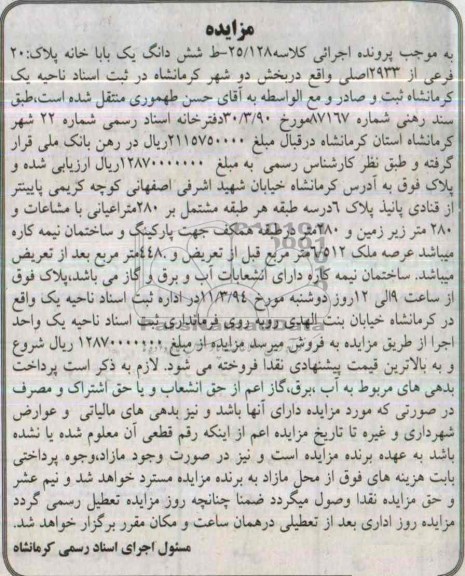 مزایده
به موجب پرونده اجرائی کلاسه۲۵/۱۲۸-ط شش دانگ یک بابا خانه پلاک:۲۰
فرعی از ۲۹۳۳اصلی واقع دربخش دو شهر کرمانشاه در ثبت اسناد ناحیه یک
کرمانشاه ثبت و صادر و مع الواسطه به آقای حسن طهموری منتقل شده است،طبق
سند رهنی شماره ۸۷۱۶۷مورخ ۳۰/۳/۹۰دفترخانه اسناد رسمی شماره ۲۲ شهر
کرمانشاه استان کرمانشاه درقبال مبلغ ۲۱۱۵۷۵۰۰۰۰ریال در رهن بانک ملی قرار
گرفته و طبق نظر کارشناس رسمی به مبلغ ۱۲۸۷۰۰۰۰۰۰۰ریال ارزیابی شده و
پلاک فوق به آدرس کرمانشاه خیابان شهید اشرفی اصفهانی کوچه کریمی پایینتر
از قنادی پانیذ پلاک ۶درسه طبقه هر طبقه مشتمل بر ۲۸۰متراعیانی با مشاعات و
۲۸۰ متر زیر زمین و ۲۸۰متر طبقه همکف جهت پارکینگ و ساختمان نیمه کاره
میباشد عرصه ملک ۷/۵۱۲متر مربع قبل از تعریض و ۴۴۸٫متر مربع بعد از تعریض
میباشد. ساختمان نیمه کاره دارای انشعابات آب و برق و گاز می باشد،پلاک فوق
از ساعت ۹الی ۱۲روز دوشنبه مورخ ۱۱/۳/۹۴در اداره ثبت اسناد ناحیه یک واقع
در کرمانشاه خیابان بنت الهدی روبه روی فرمانداری ثبت اسناد ناحیه یک واحد
اجرا از طریق مزایده به فروش میرسد مزایده از مبلغ ۱۲۸۷۰۰۰۰۰۰۰ ریال شروع
و به بالاترین قیمت پیشنهادی نقدا فروخته می شود. لازم به ذکر است پرداخت
بدهی های مربوط به آب ،برق،گاز اعم از حق انشعاب و یا حق اشتراک و مصرف
در صورتی که مورد مزایده دارای آنها باشد و نیز بدهی های مالیاتی و عوارض
شهرداری و غیره تا تاریخ مزایده اعم از اینکه رقم قطعی آن معلوم شده یا نشده
باشد به عهده برنده مزایده است و نیز در صورت وجود مازاد،وجوه پرداختی
بابت هزینه های فوق از محل مازاد به برنده مزایده مسترد خواهد شد و نیم عشر
و حق مزایده نقدا وصول میگردد ضمنا چنانچه روز مزایده تعطیل رسمی گردد
مزایده روز اداری بعد از تعطیلی درهمان ساعت و مکان مقرر برگزار خواهد شد.
مسئول اجرای اسناد رسمی کرمانشاه